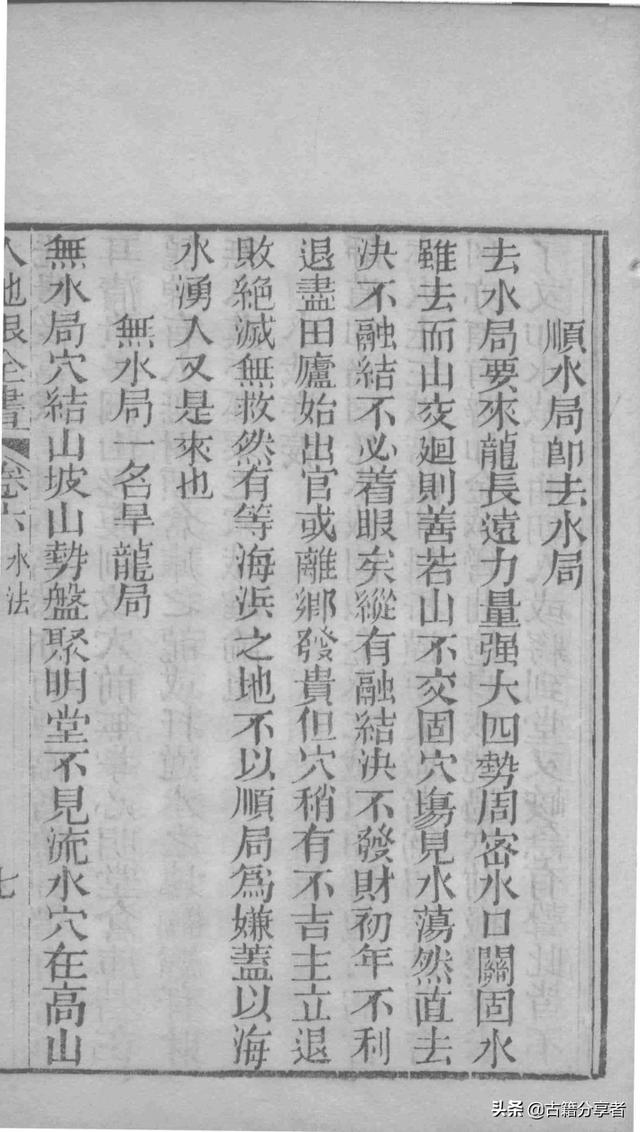 順水局卽去水局
去水局要來龍長遠力量强大四勢周密水口關固水
雖去而山交廻則善若山不交固穴塲見水蕩然直去
決不融結不必着眼矣縱有融結決不發財初年不利
退盡田廬始出官或離鄉發貴但穴稍有不吉主立退
敗絕滅無救然有等海浜之地不以順局爲嫌蓋以海
水湧入又是來也
無水局一名旱龍局
無水局穴結山坡山勢盤聚明堂不見流水穴在高山
人地眼全書 卷六 水法 七
头条 @古籍分享者